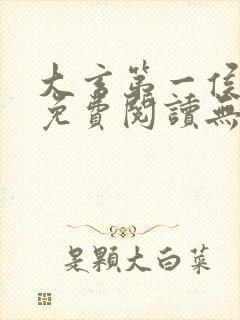 大言第一侯
免費閱讀無
是顆大白菜